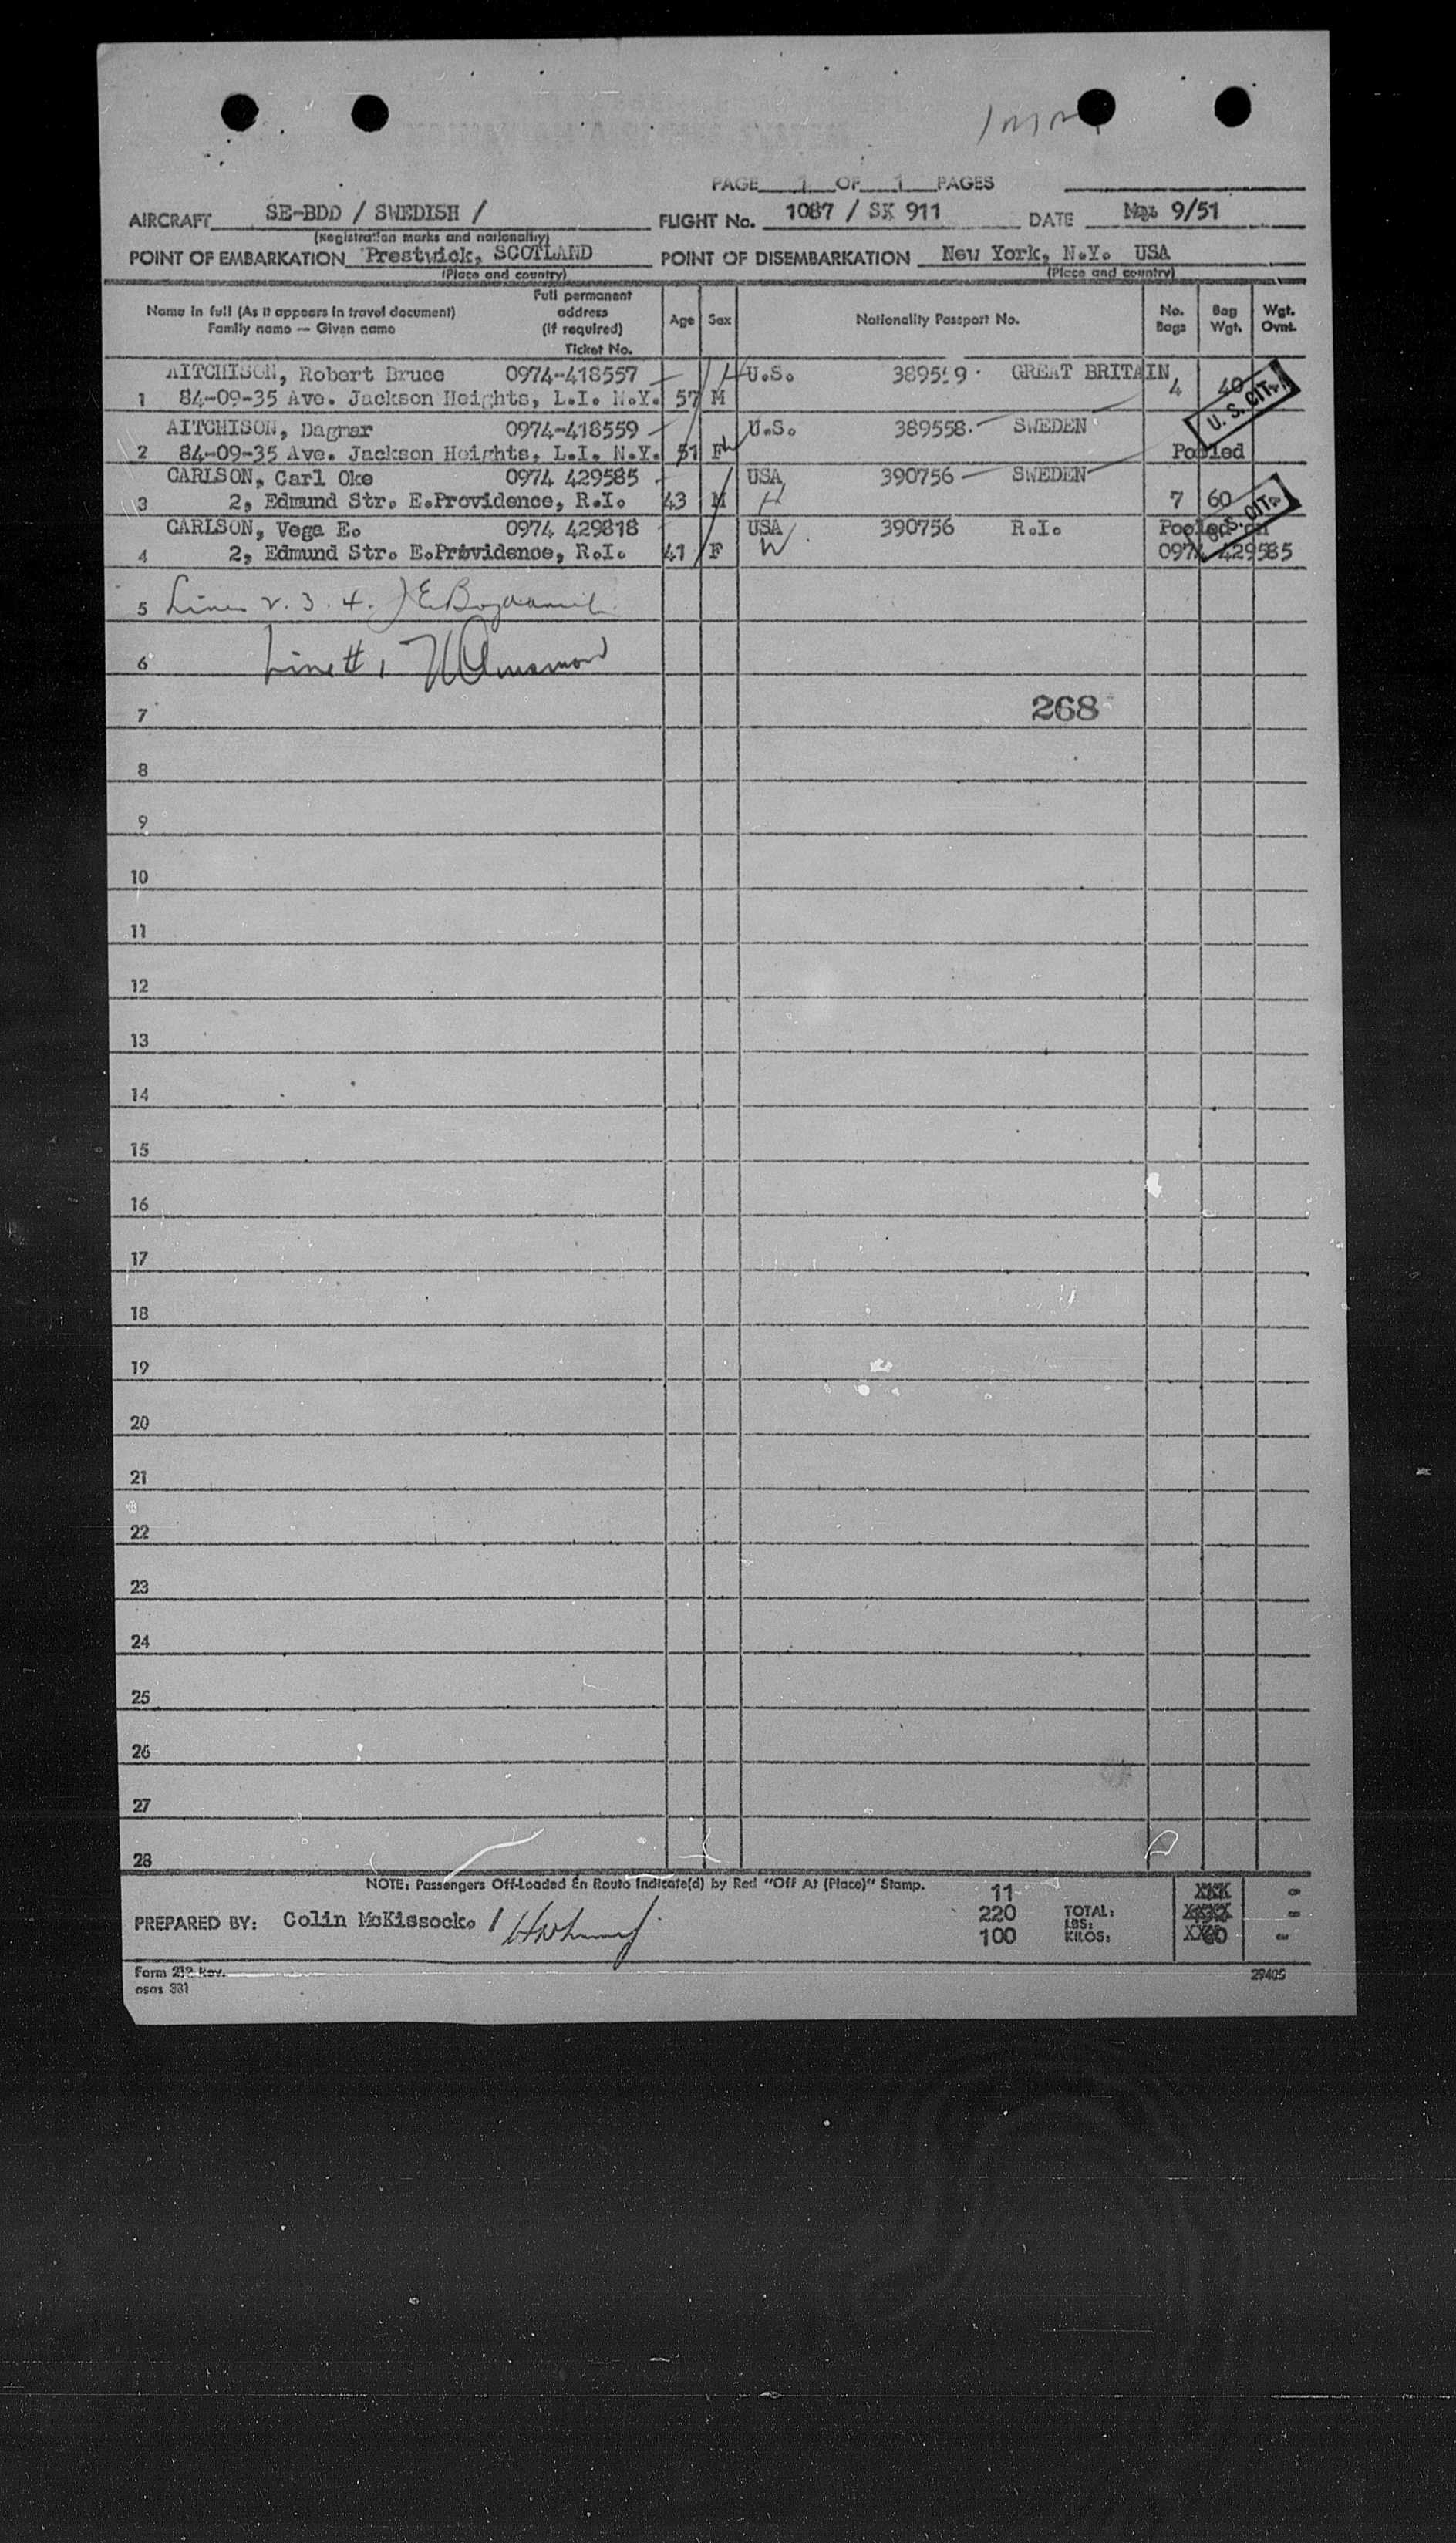 PAGE 1 OF 1 PAGES
AIRCRAFT SE-BDD / SWEDISH / FLIGHT No. 1087 / SK 911 DATE 9/51
(Registration marks and nationality)
POINT OF EMBARKATION Prestwick, SCOTLAND POINT OF DISEMBARKATION New York, N.Y. USA
(Place and country) (Place and country)
Name in full (As it appears in travel document) Family name — Given name Full permanent address (if required) Ticket No. Age Sex Nationality Passport No. No. Bags Bag Wgt. Wgt. Ovnt.
AITCHISON, Robert Bruce 0974-418557 H U.S. GREAT BRITAIN
1 84-09-35 Ave. Jackson Heights, L.I. N.Y. 57 M 4 40
U. S. CIT.
AITCHISON, Dagmar 0974-418559 U.S. 389558. SWEDEN
2 84-09-35 Ave. Jackson Heights, L.I. N.Y. 51 F W Pooled
CARLSON, Carl Oke 0974 429585 USA 390756 SWEDEN
3 2, Edmund Str. E.Providence, R.I. 43 M H 7 60
U. S. CIT.
CARLSON, Vega E. 0974 429818 USA 390756 R.I. Pooled on
4 2, Edmund Str. E.Providence, R.I. 41 F W 0974 429585
5 Lines 2. 3. 4.
6 Line # 1
7 268
8
9
10
11
12
13
14
15
16
17
18
19
20
21
22
23
24
25
26
27
28
NOTE: Passengers Off-Loaded En Route Indicate(d) by Red "Off At (Place)" Stamp.
11 XXX -
PREPARED BY: Colin McKissock. / 220 TOTAL: LBS: -
100 KILOS: -
Form 212 Rev. 29405
asas 331